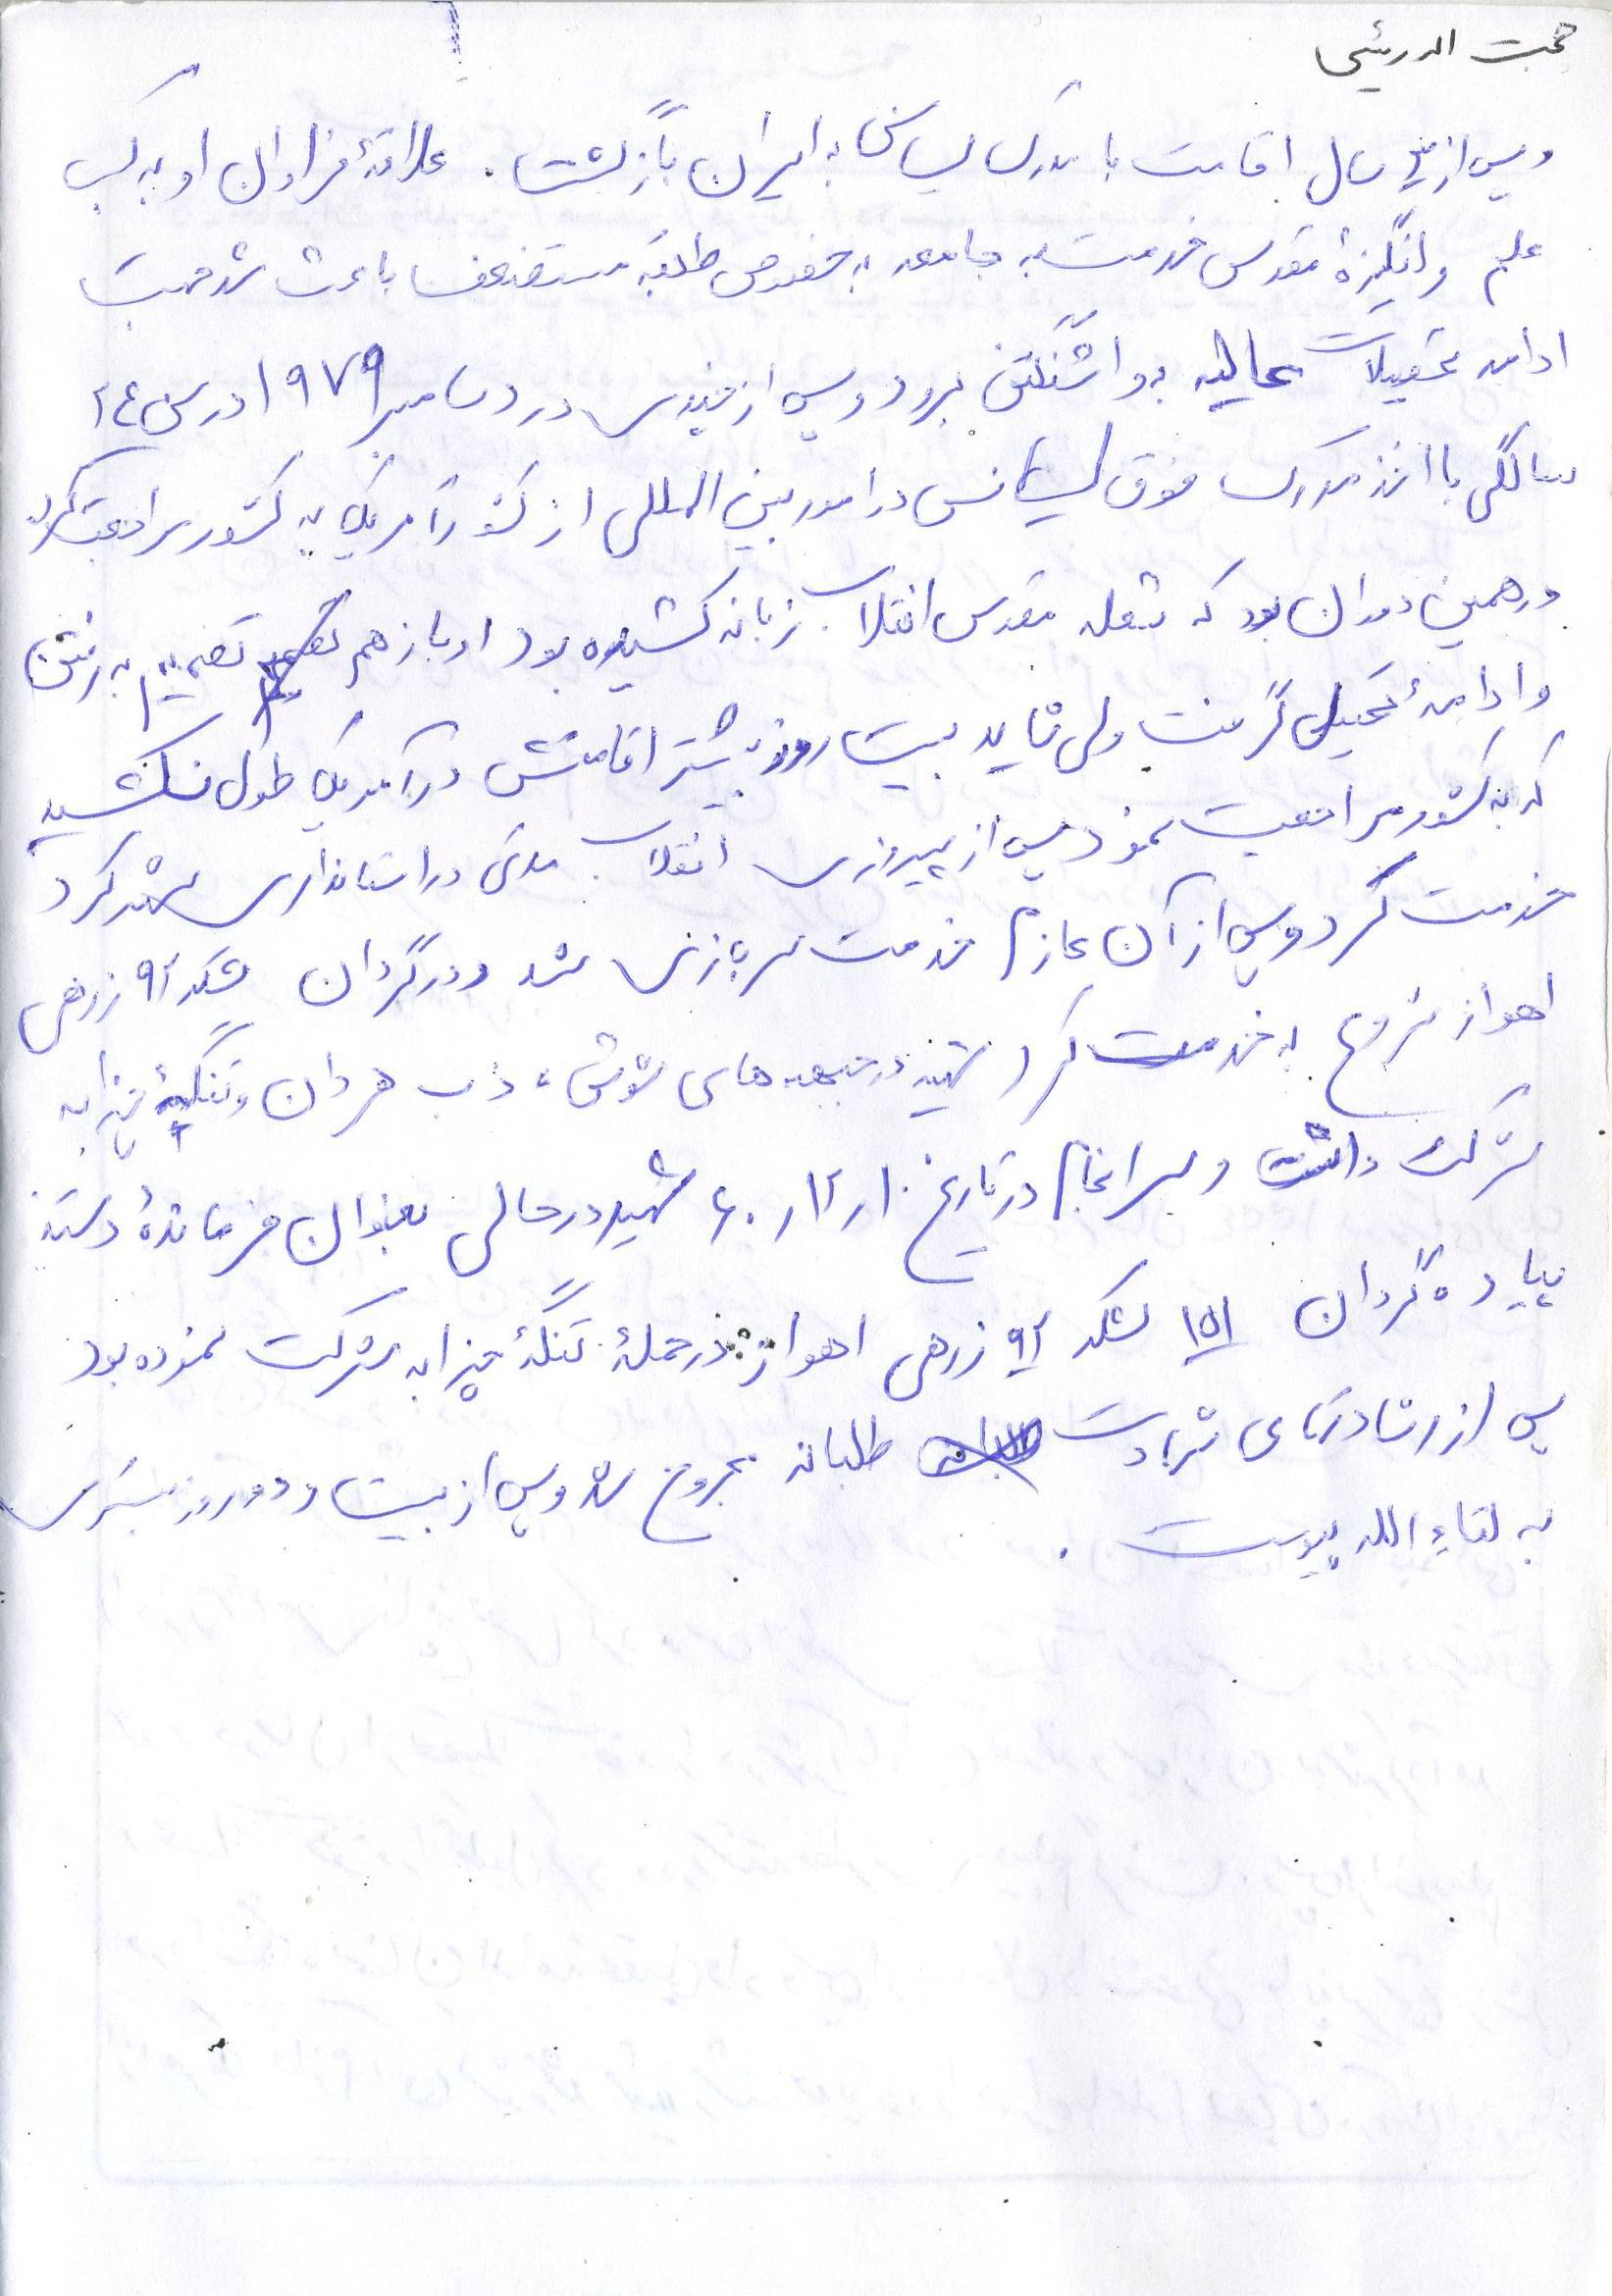 حجت اله رئیسی
و پس از پنج سال اقامت با مدرک لیسانس به ایران بازگشت. علاقهٔ فراوان او به کسب
علم و انگیزهٔ مقدس خدمت به جامعه به خصوص طبقه مستضعف باعث شد جهت
ادامه تحصیلات عالیه به واشنگتن برود و پس از چندی در دسامبر ۱۹۷۹ در سن ۲٤
سالگی با اخذ مدرک فوق لیسانس در امور بین المللی از کشور آمریکا به کشور مراجعت کرد
در همین دوران بود که شعله مقدس انقلاب زبانه کشیده بود او باز هم تصمیم به رفتن
و ادامهٔ تحصیل گرفت ولی شاید بیست روز بیشتر اقامتش در آمریکا طول نکشید
که به کشور مراجعت نمود پس از پیروزی انقلاب مدتی در استانداری شهرکرد
خدمت کرد و پس از آن عازم خدمت سربازی شد و در گردان لشکر ۹۲ زرهی
اهواز شروع به خدمت کرد شهید در جبهه های شوش، دب هردان و تنگهٔ چزابه
شرکت داشت و سرانجام در تاریخ ۶۰/۱۲/۱۰ شهید در حالی بعنوان فرماندهٔ دسته
پیاده گردان ۱۵۱ لشکر ۹۲ زرهی اهواز در حملهٔ تنگهٔ چزابه شرکت نموده بود
پس از رشادتهای شهادت طلبانه مجروح شد و پس از بیست و دو روز بستری
به لقاء الله پیوست.